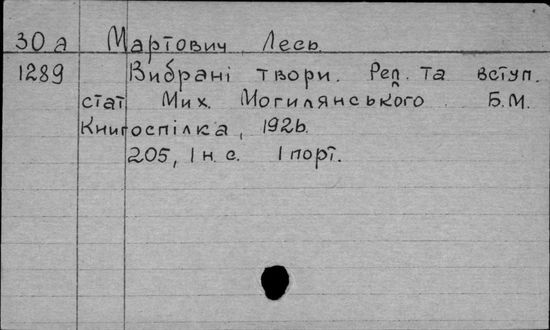 30 а Мартович, Лесь.
1289 Вибрані твори. Реп. та вступ.
стат. Мих. Могилянського. Б.М.
Книгоспілка, 1926.
205, 1 н. с. 1 порт.